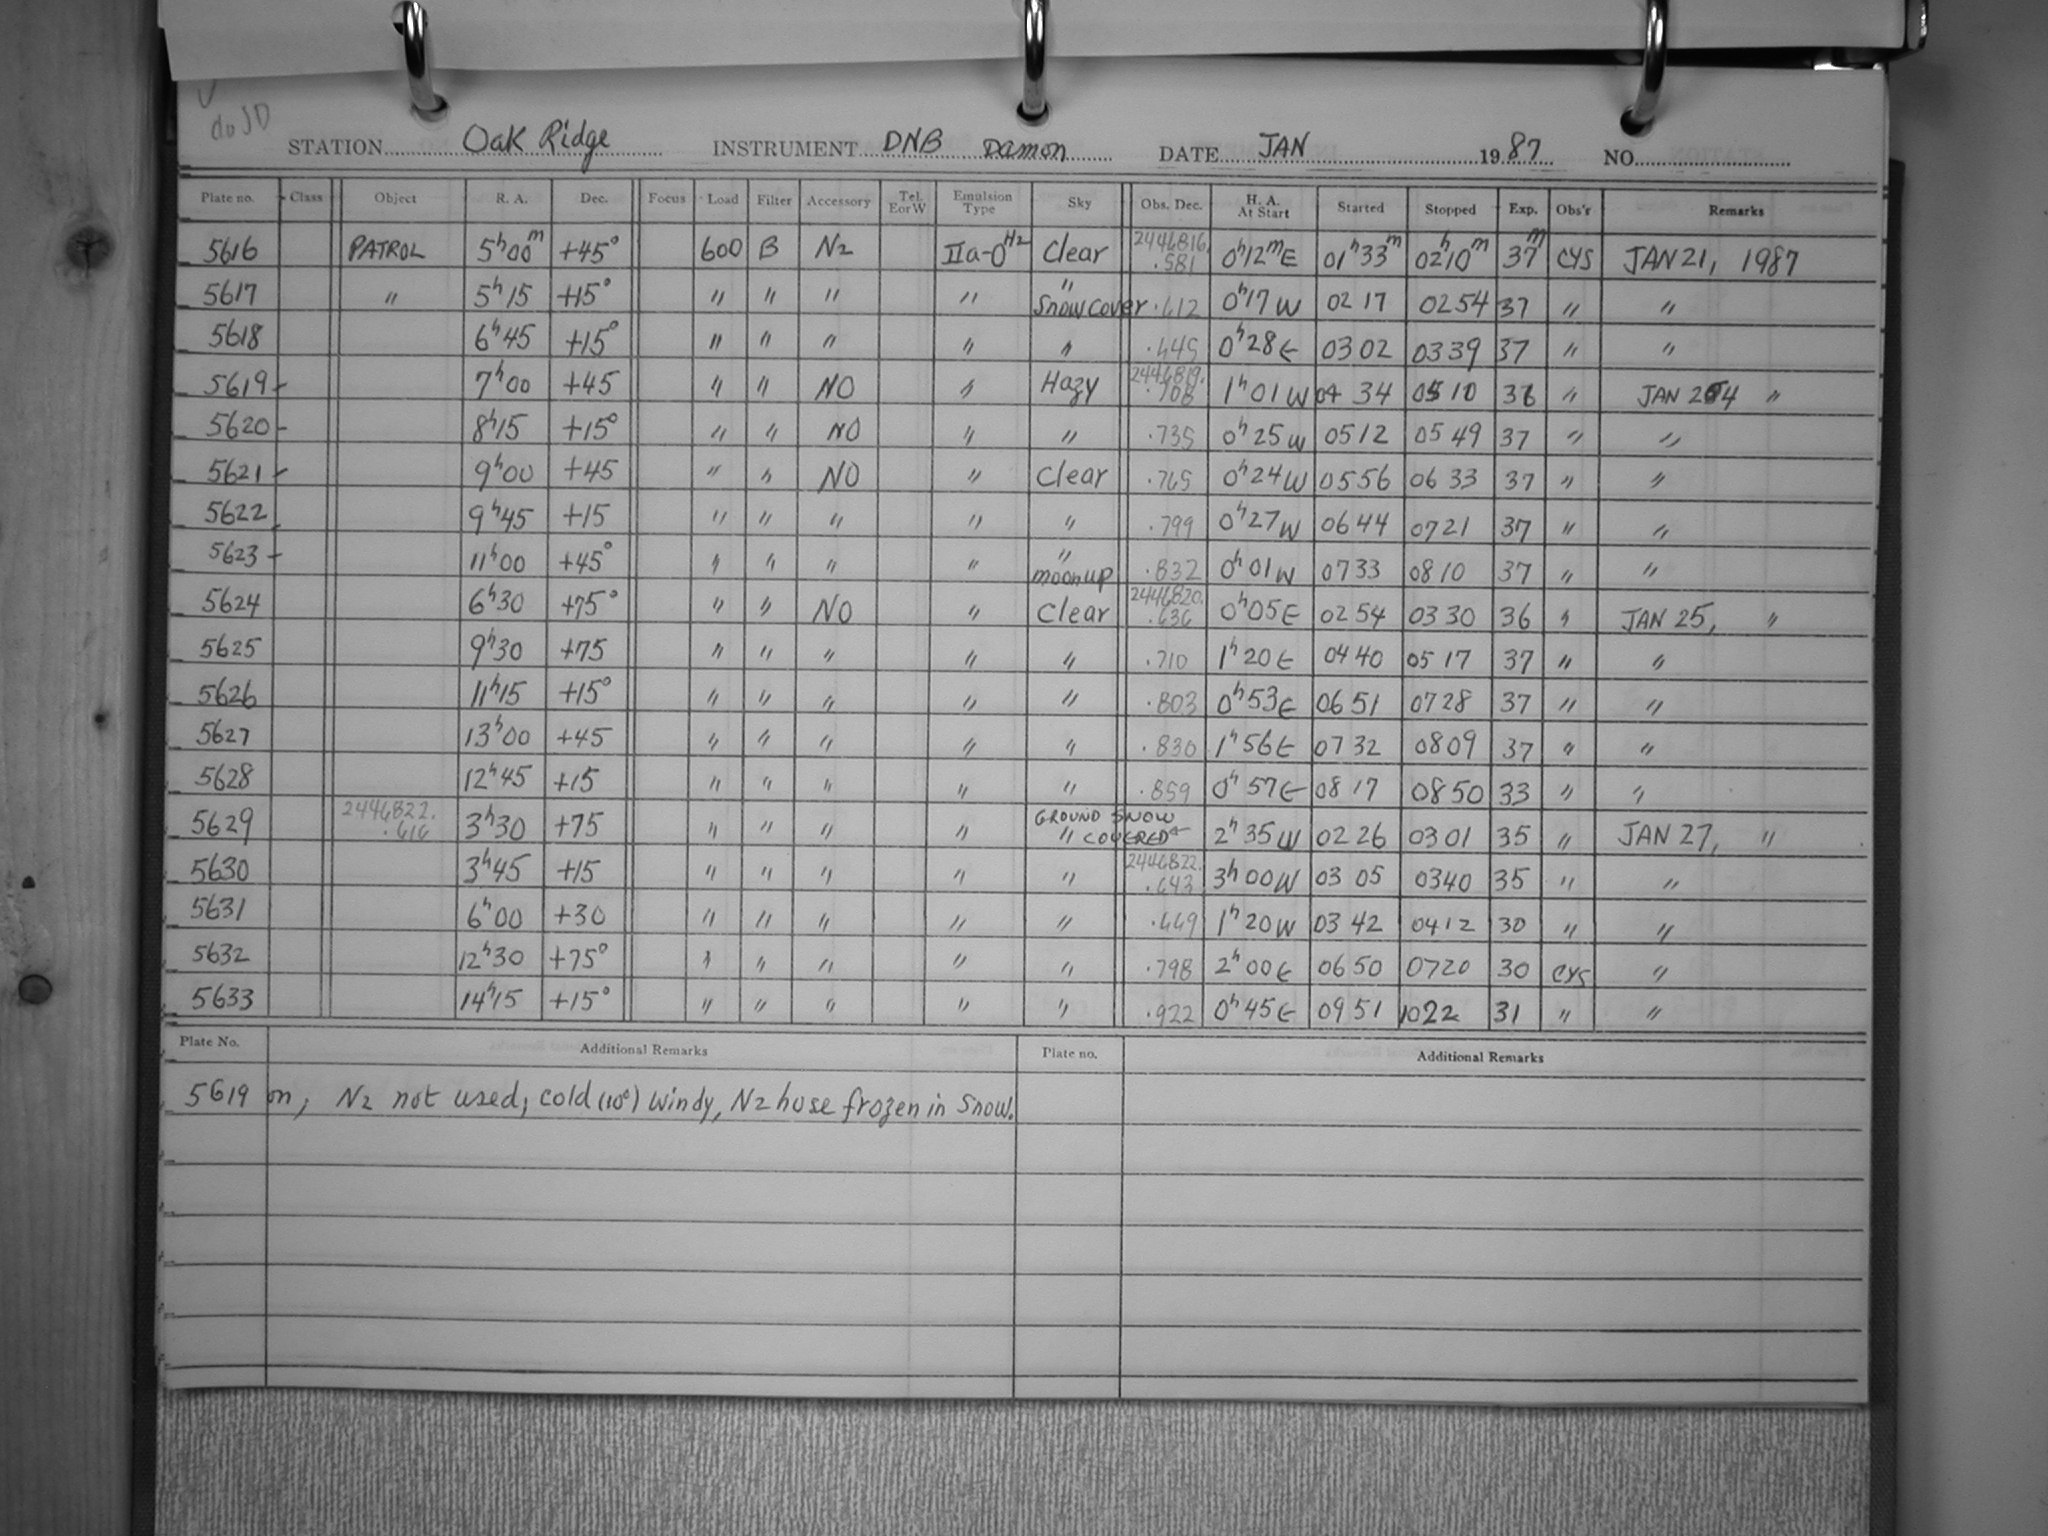 do JD
STATION Oak Ridge INSTRUMENT DNB Damon DATE JAN 1987 NO.
Plate no. Class Object R. A. Dec. Focus Load Filter Accessory Tel. E or W Emulsion Type Sky Obs. Dec. H. A. At Start Started Stopped Exp. Obs'r Remarks
5616 PATROL 5h00m +45° 600 B N2 IIa-O H2 Clear 2446816. .581 0h12mE 01h33m 02h10m 37m CYS JAN 21, 1987
5617 " 5h15 +15° " " " " " Snow cover .612 0h17W 02 17 02 54 37 " "
5618 6h45 +15° " " " " " 0h28E 03 02 03 39 37 " "
5619 - 7h00 +45 " " NO " Hazy 2446819. .708 1h01W 04 34 05 10 36 " JAN 24 "
5620 - 8h15 +15° " " NO " " .735 0h25W 05 12 05 49 37 " "
5621 - 9h00 +45 " " NO " Clear .765 0h24W 05 56 06 33 37 " "
5622 9h45 +15 " " " " " .799 0h27W 06 44 07 21 37 " "
5623 - 11h00 +45° " " " " " moon up .832 0h01W 07 33 08 10 37 " "
5624 6h30 +75° " " NO " Clear 2446820. .636 0h05E 02 54 03 30 36 " JAN 25, "
5625 9h30 +75 " " " " " .710 1h20E 04 40 05 17 37 " "
5626 11h15 +15° " " " " " .803 0h53E 06 51 07 28 37 " "
5627 13h00 +45 " " " " " .830 1h56E 07 32 08 09 37 " "
5628 12h45 +15 " " " " " .859 0h57E 08 17 08 50 33 " "
5629 2446822. .616 3h30 +75 " " " " GROUND SNOW " COVERED 2h35W 02 26 03 01 35 " JAN 27, "
5630 3h45 +15 " " " " " 2446822. .643 3h00W 03 05 03 40 35 " "
5631 6h00 +30 " " " " " .669 1h20W 03 42 04 12 30 " "
5632 12h30 +75° " " " " " .798 2h00E 06 50 07 20 30 CYS "
5633 14h15 +15° " " " " " .922 0h45E 09 51 10 22 31 " "
Plate No. Additional Remarks Plate no. Additional Remarks
5619 on, N2 not used, cold (10°) windy, N2 hose frozen in Snow.